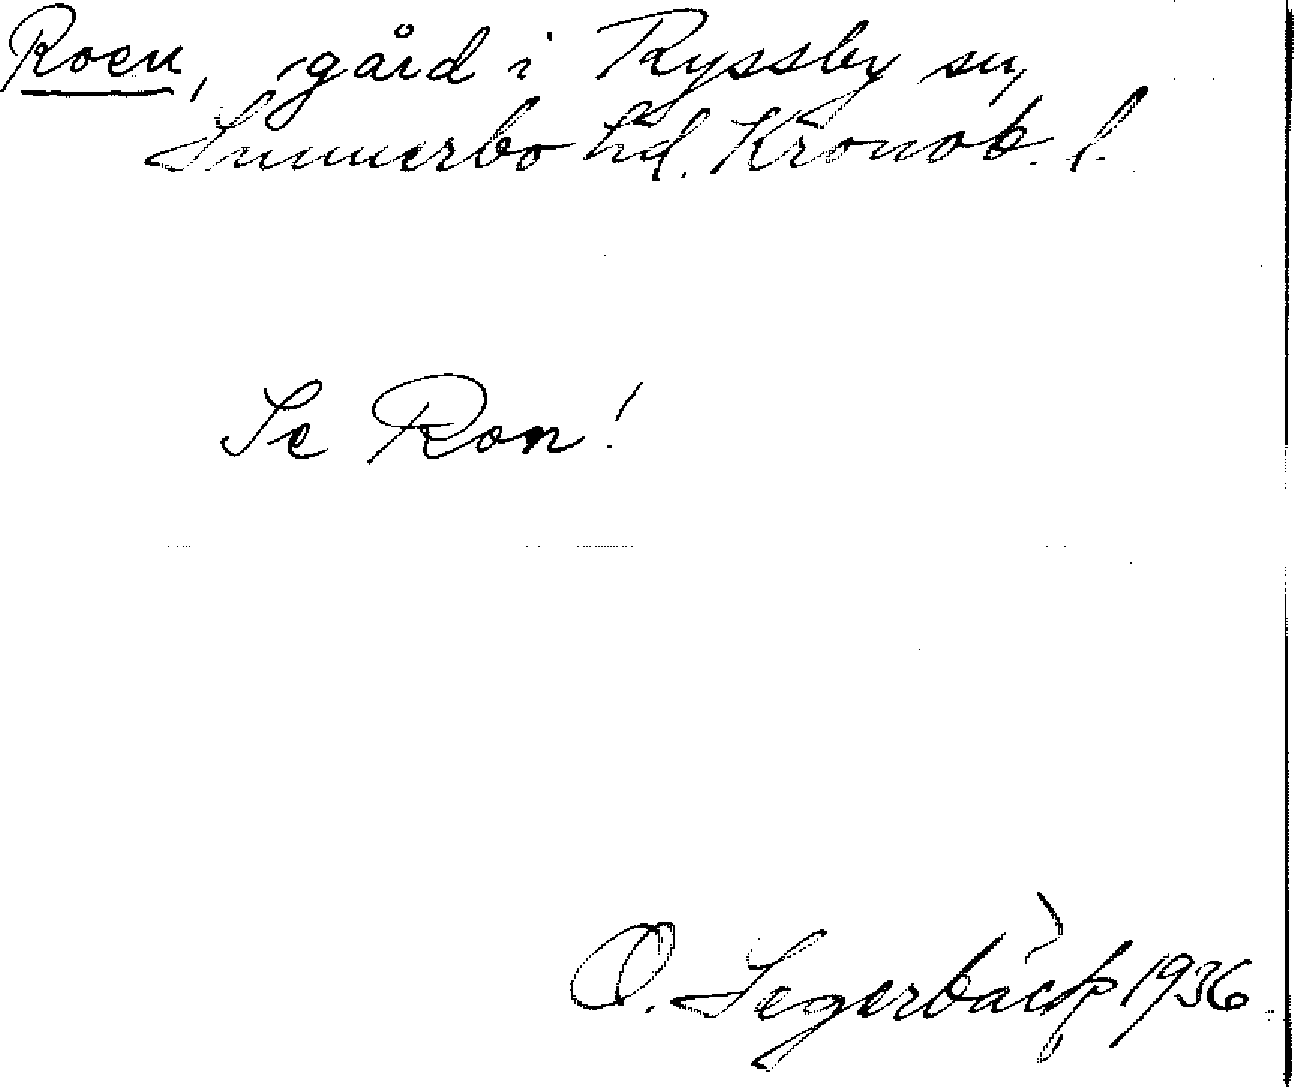 Roen, gård i Ryssby sn,
Sunnerbo hd. Kronob. l.
Se Ron!
O. Segerbäck 1936